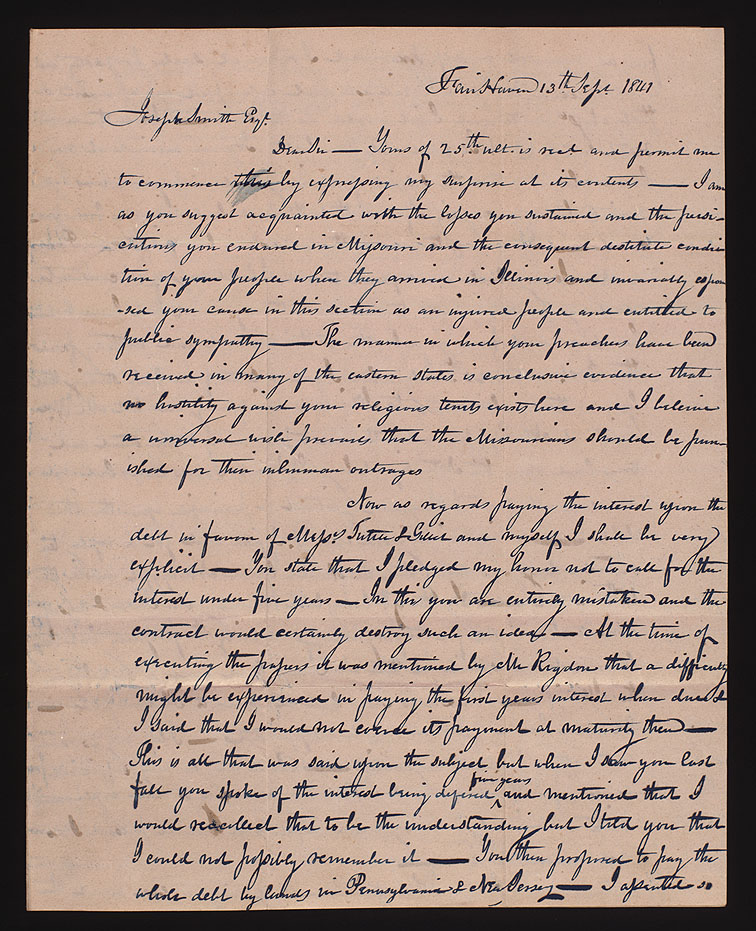 Fair Haven 13th Sept. 1841
Joseph Smith Esqr.
Dear Sir — Yours of 25th ult. is recd. and permit me
to commence by expressing my surprise at its contents — I am
as you suggest acquainted with the losses you sustained and the perse-
cutions you endured in Missouri and the consequent destitute condi-
tion of your people when they arrived in Illinois and invariably espou
-sed your cause in this section as an injured people and entitled to
public sympathy — The manner in which your preachers have been
received in many of the eastern states is conclusive evidence that
no hostility against your religious tenets exists here and I believe
a universal wish prevails that the Missourians should be pun-
ished for their inhuman outrages
Now as regards paying the interest upon the
debt in favour of Messrs Tuttle & Gillet and myself I shall be very
explicit — You state that I pledged my honor not to call for the
interest under five years — In this you are entirely mistaken and the
contract would certainly destroy such an idea — At the time of
executing the papers it was mentioned by Mr Rigdon that a difficulty
might be experienced in paying the first years interest when due &
I said that I would not coerce its payment at maturity then —
This is all that was said upon the subject but when I saw you last
fall you spoke of the interest being defered five years and mentioned that I
would recollect that to be the understanding but I told you that
I could not possibly remember it — You then proposed to pay the
whole debt by lands in Pennsylvania & New Jersey — I assented so